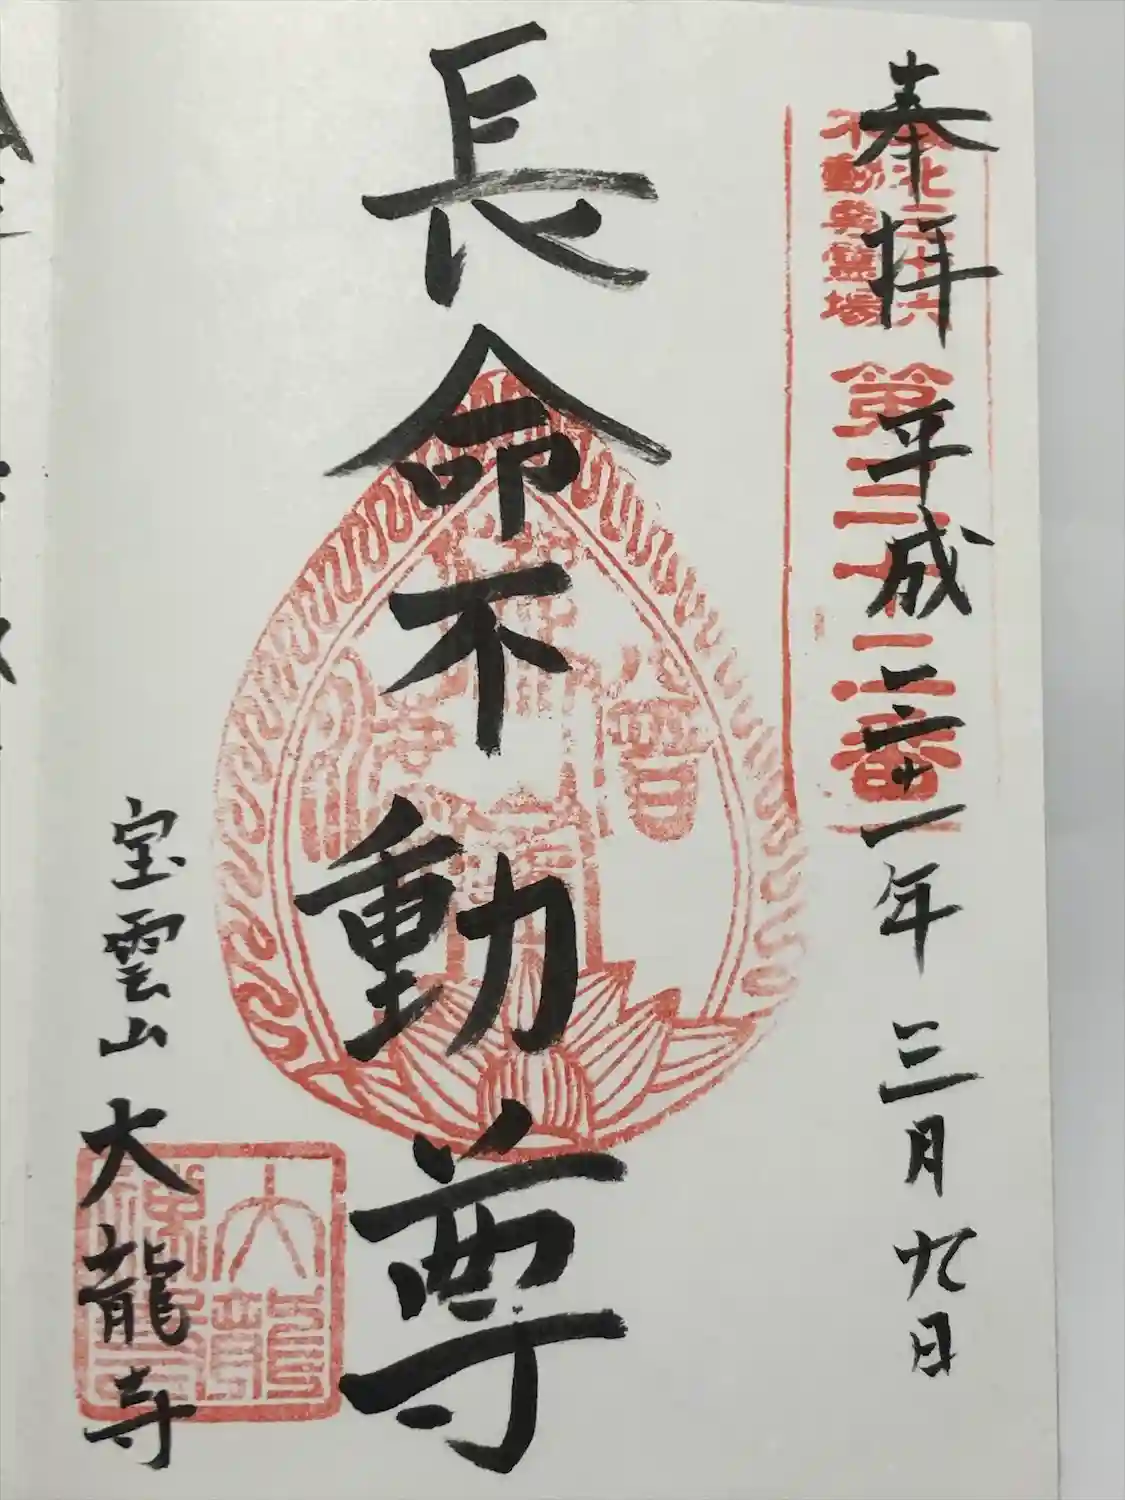 奉拝 平成二十一年 三月九日
北三十六
不動尊霊場
第三十二番
長命不動尊
宝雲山 大龍寺
大龍